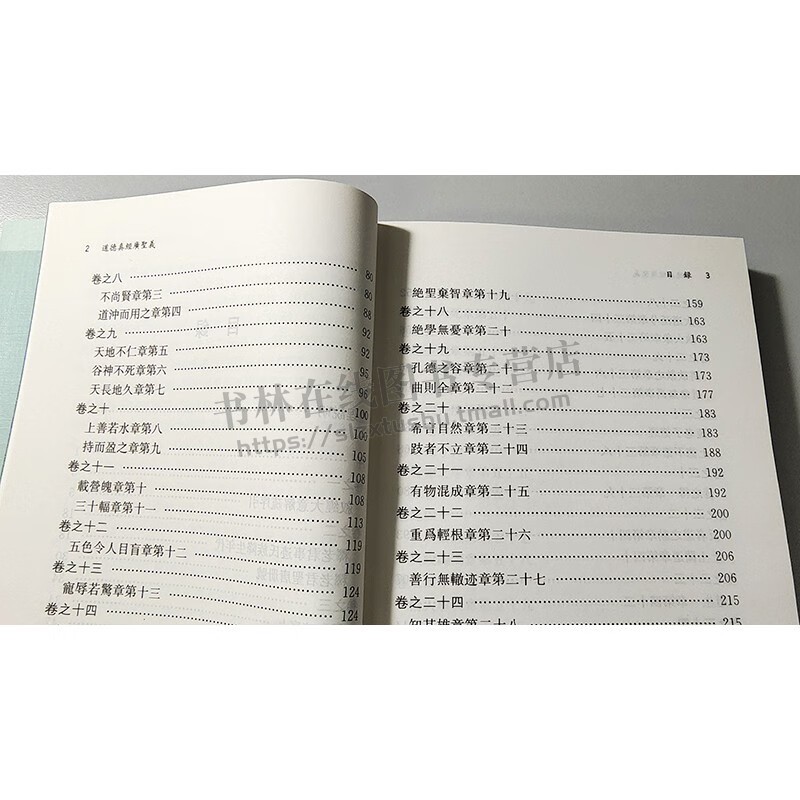 2 道德真經廣聖義
卷之八 80
不尚賢章第三 80
道沖而用之章第四 88
卷之九 92
天地不仁章第五 92
谷神不死章第六 95
天長地久章第七 96
卷之十 100
上善若水章第八 100
持而盈之章第九 105
卷之十一 108
載營魄章第十 108
三十輻章第十一 113
卷之十二 119
五色令人目盲章第十二 119
卷之十三 124
寵辱若驚章第十三 124
卷之十四
目錄 3
絶聖棄智章第十九 159
卷之十八 163
絶學無憂章第二十 163
卷之十九 173
孔德之容章第二十一 173
曲則全章第二十二 177
卷之二十 183
希言自然章第二十三 183
跂者不立章第二十四 188
卷之二十一 192
有物混成章第二十五 192
卷之二十二 200
重爲輕根章第二十六 200
卷之二十三 206
善行無轍迹章第二十七 206
卷之二十四 215
知其雄章第二十八 215
书林在线图书专营店
https://slzxtushu.tmall.com